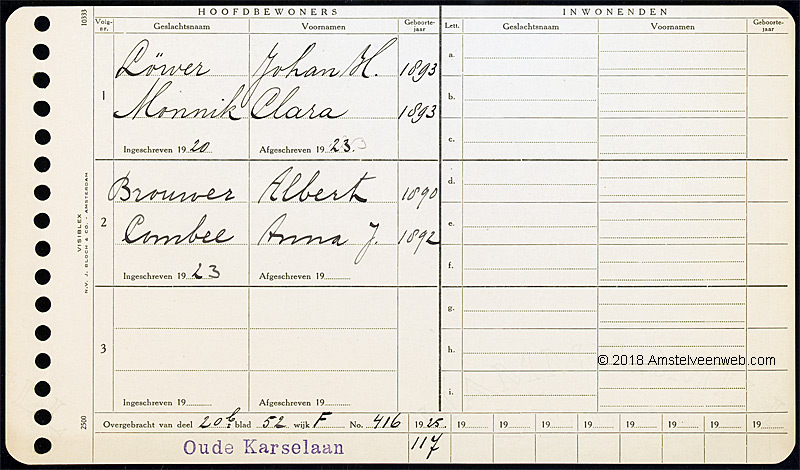 HOOFDBEWONERS
INWONENDEN
10333
Volg-nr. Geslachtsnaam Voornamen Geboorte-jaar
Lett. Geslachtsnaam Voornamen Geboorte-jaar
1
Löwer Johan H. 1893
Monnik Clara 1893
Ingeschreven 19 20 Afgeschreven 19 23
2
Brouwer Albert 1890
Combee Anna J. 1892
Ingeschreven 19 23 Afgeschreven 19
3
Ingeschreven 19 Afgeschreven 19
a.
b.
c.
d.
e.
f.
g.
h.
i.
VISIBLEX
N.V. J. BLOCH & CO. - AMSTERDAM
2500
© 2018 Amstelveenweb.com
Overgebracht van deel 20b. blad 52 wijk F No. 416 19 25. 19 19 19 19 19 19 19
Oude Karselaan 117